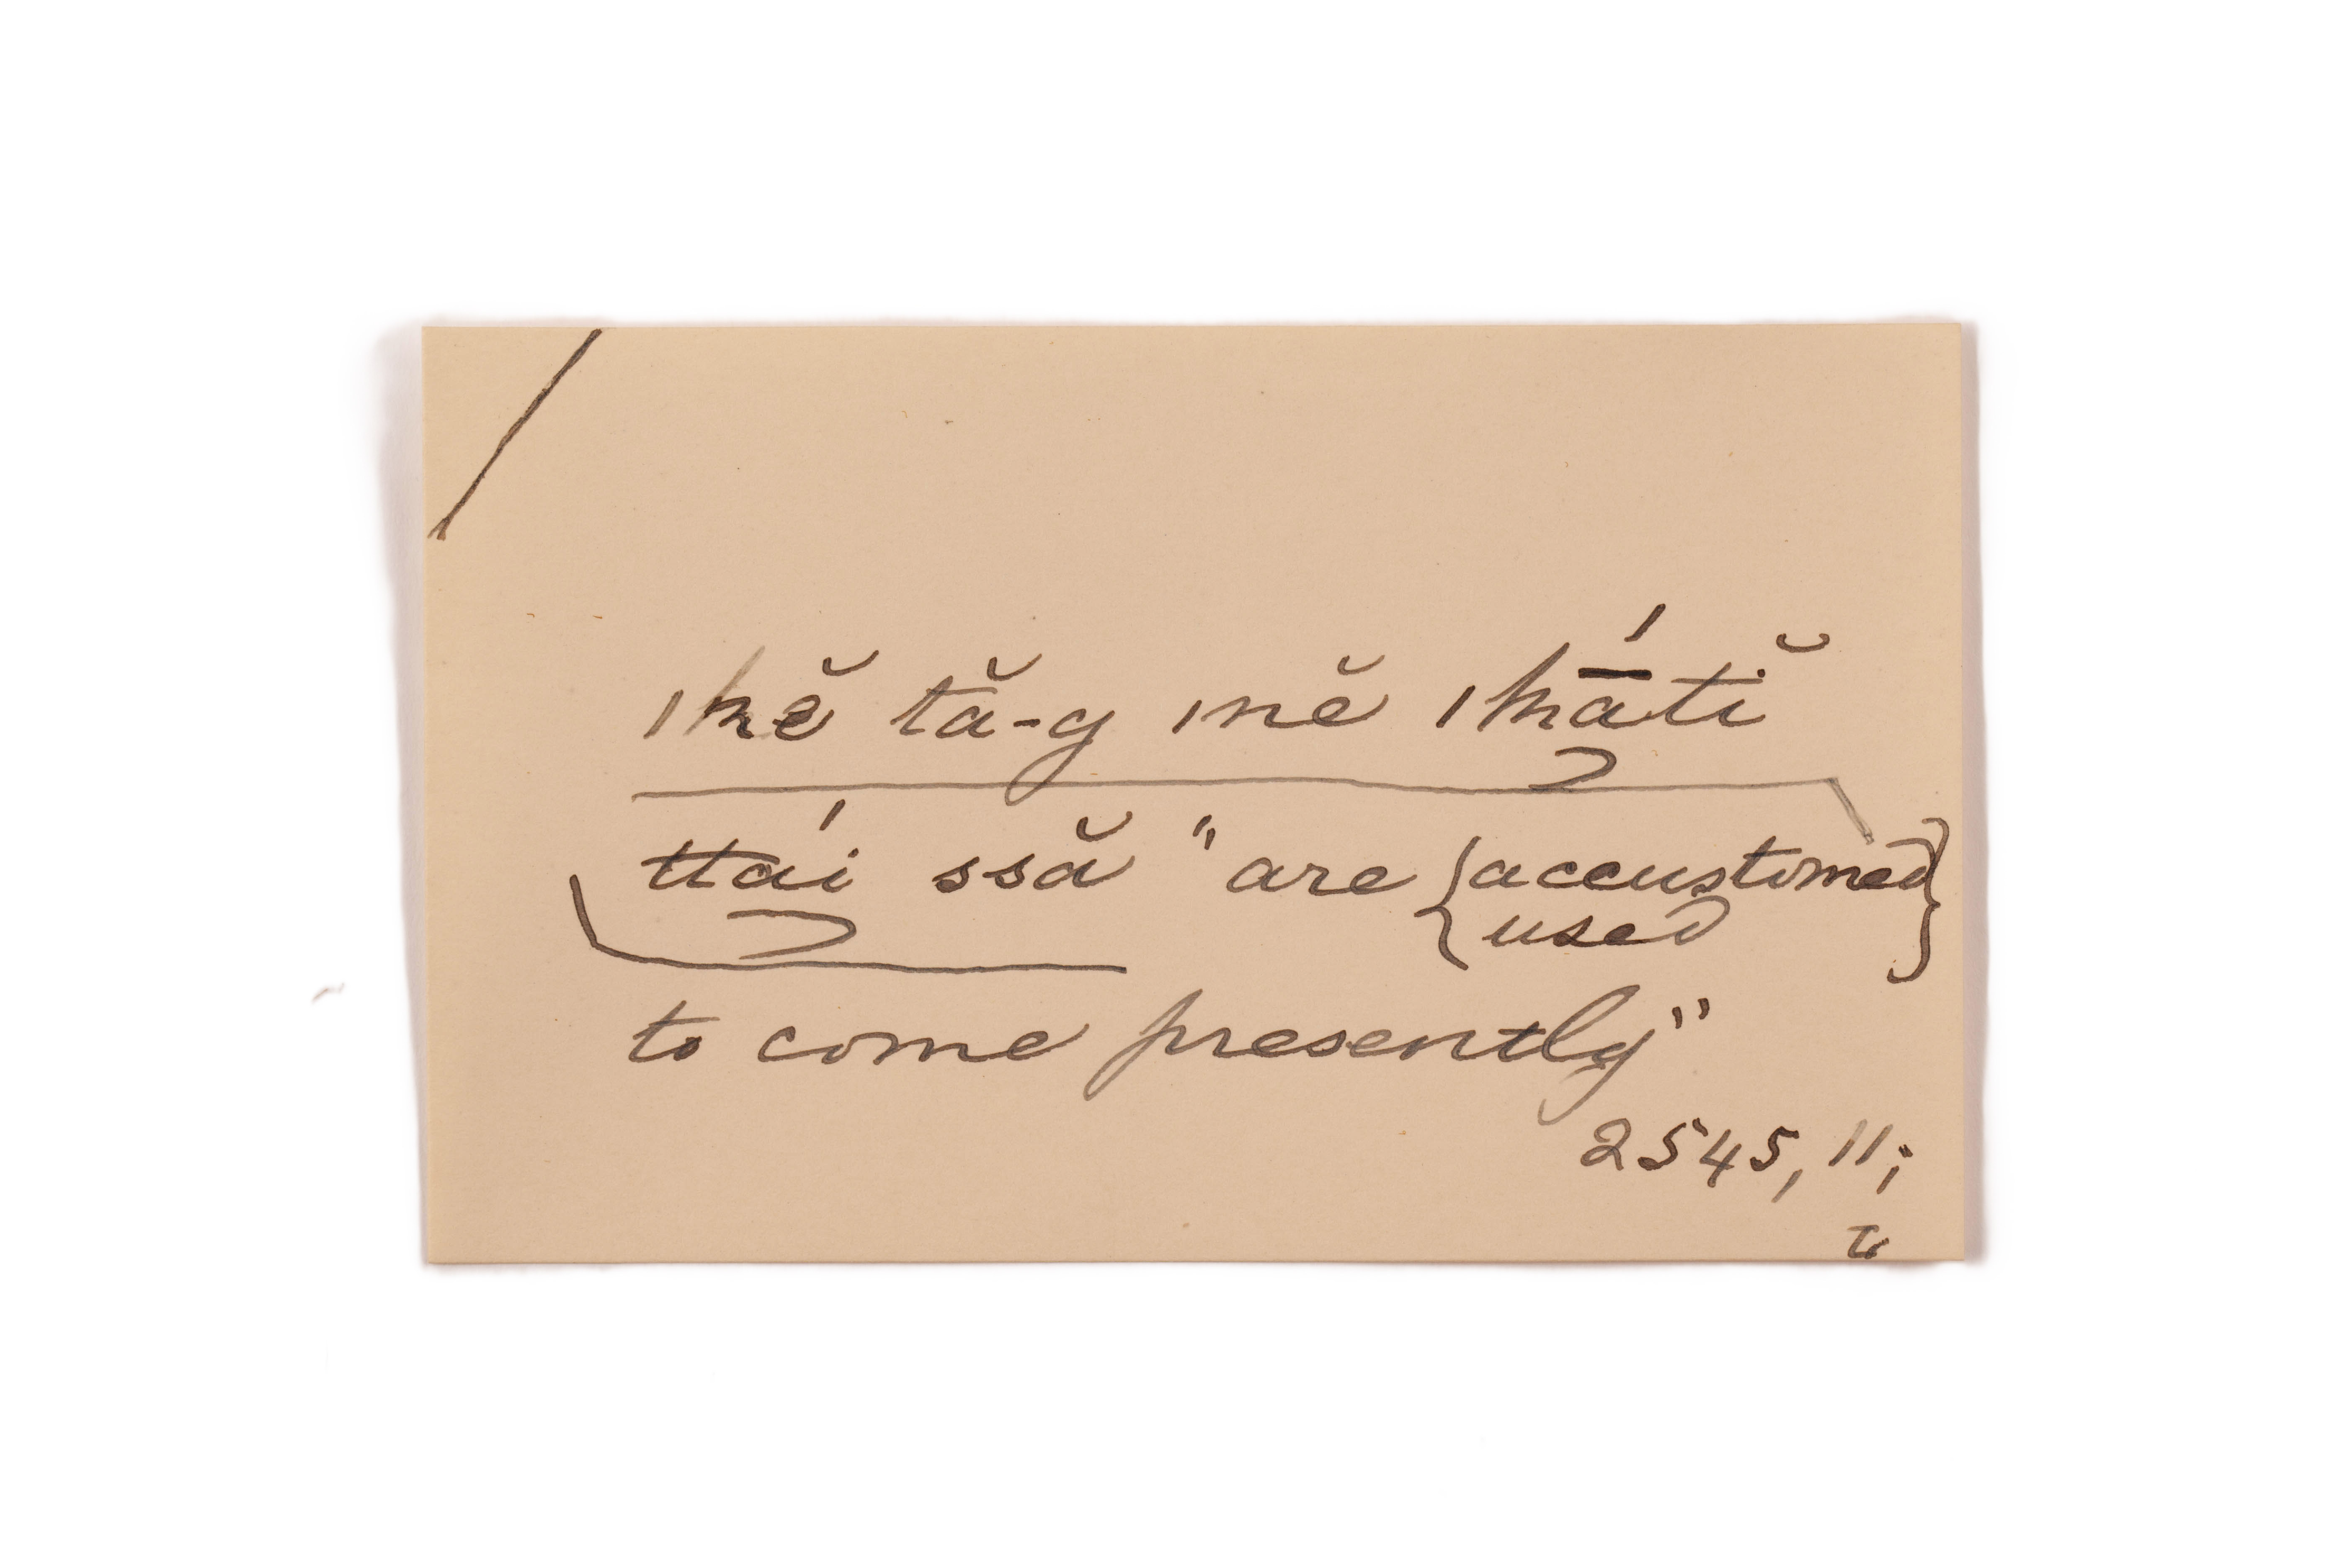 ıhĕ tă-g ınĕ ıhā́tĭ
ttái ssă "are {accustomed}
{used}
to come presently"
2545, 11;